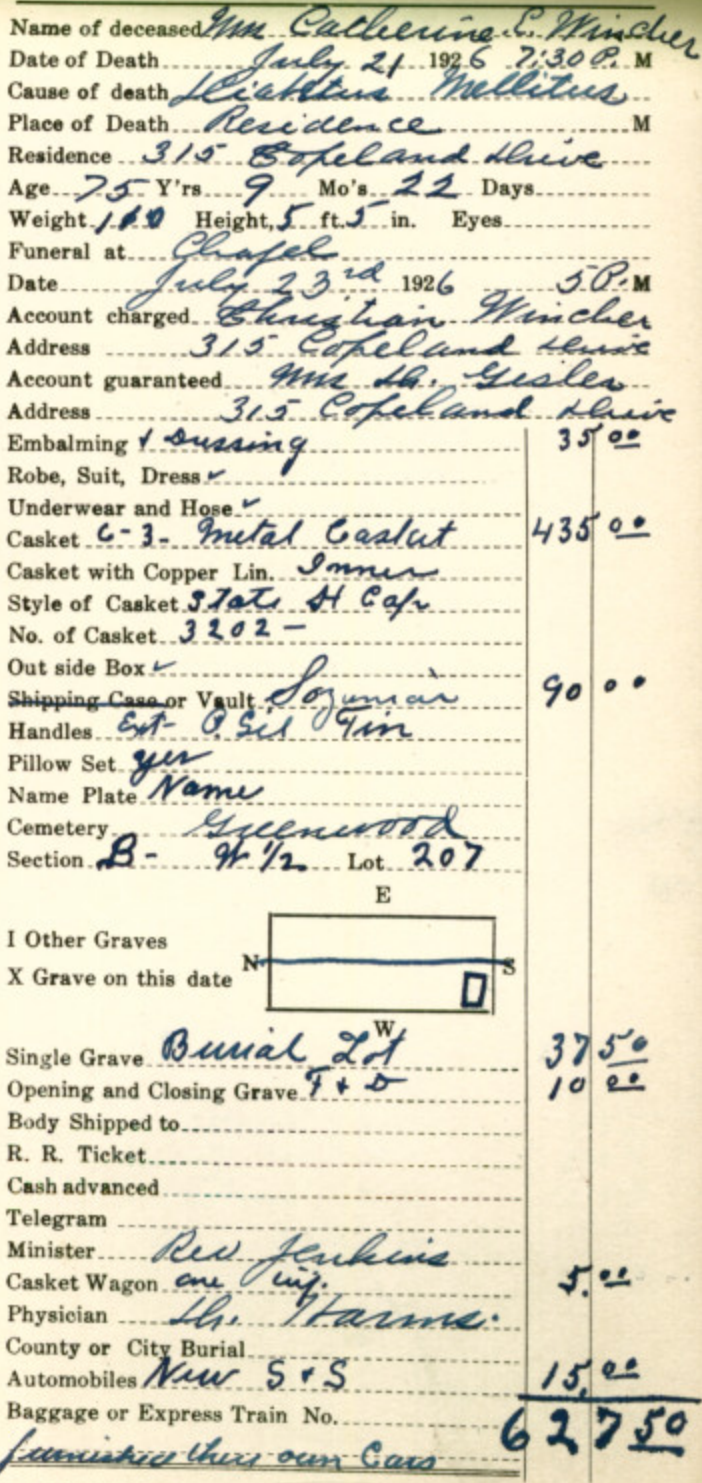 Name of deceased Mrs Catherine E. Wincher
Date of Death July 21 1926 7:30 P. M
Cause of death Diabetus Mellitus
Place of Death Residence M
Residence 315 Copeland Drive
Age 75 Y'rs 9 Mo's 22 Days
Weight 110 Height, 5 ft. 5 in. Eyes
Funeral at Chapel
Date July 23rd 1926 5 P. M
Account charged Christian Wincher
Address 315 Copeland Drive
Account guaranteed Mrs Gesler
Address 315 Copeland Drive
Embalming & Dressing 35 00
Robe, Suit, Dress ✓
Underwear and Hose ✓
Casket C-3- Metal Casket 435 00
Casket with Copper Lin. Inner
Style of Casket State H Cap
No. of Casket 3202 -
Out side Box ✓
Shipping Case or Vault 90 00
Handles Ext- P. Sil Tin
Pillow Set yes
Name Plate Name
Cemetery Greenwood
Section B- W 1/2 Lot 207
E
I Other Graves
N S
X Grave on this date
W
Single Grave Burial Lot 37 50
Opening and Closing Grave F & D 10 00
Body Shipped to
R. R. Ticket
Cash advanced
Telegram
Minister Rev Jenkins
Casket Wagon one 5.00
Physician Dr. Harms.
County or City Burial
Automobiles New S & S 15.00
Baggage or Express Train No. 627 50
furnished there own Cars